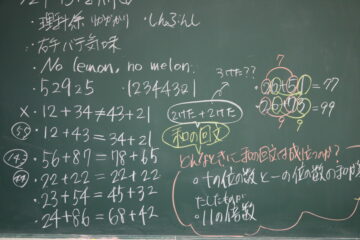 ・理科系 ゆかり ・しんぶんし
・カキ バテ気味
・No lemon, no melon.
・52925 ・1234321
× ・12+34≠43+21
・12+43=34+21
・56+87=78+65
・22+22=22+22
・23+54=45+32
・24+86=68+42
3けた??
2けた+2けた
和の回文
7
26+51=77
26+73=99
9 9
どんなときに和の回文が成位つのか?
・十の位の数と一の位の数の和が
たしたものが
・11の倍数